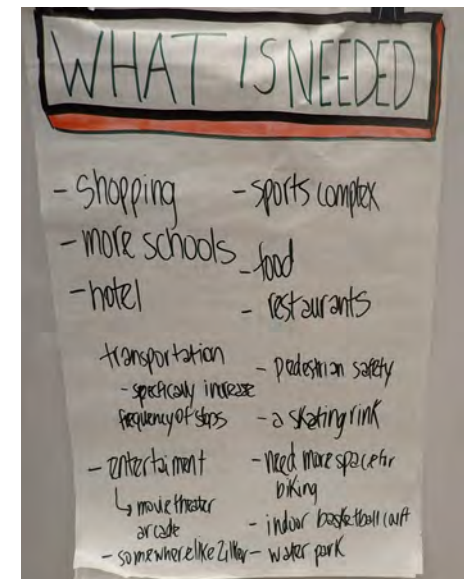 WHAT IS NEEDED
- shopping
- more schools
- hotel
transportation
- specifically increase
frequency of stops
- entertaiment
↳ movie theater
arcade
- somewhere like Zilker
- sports complex
- food
- restaurants
- pedestrian safety
- a skating rink
- need more space for
biking
- indoor basketball court
- water park